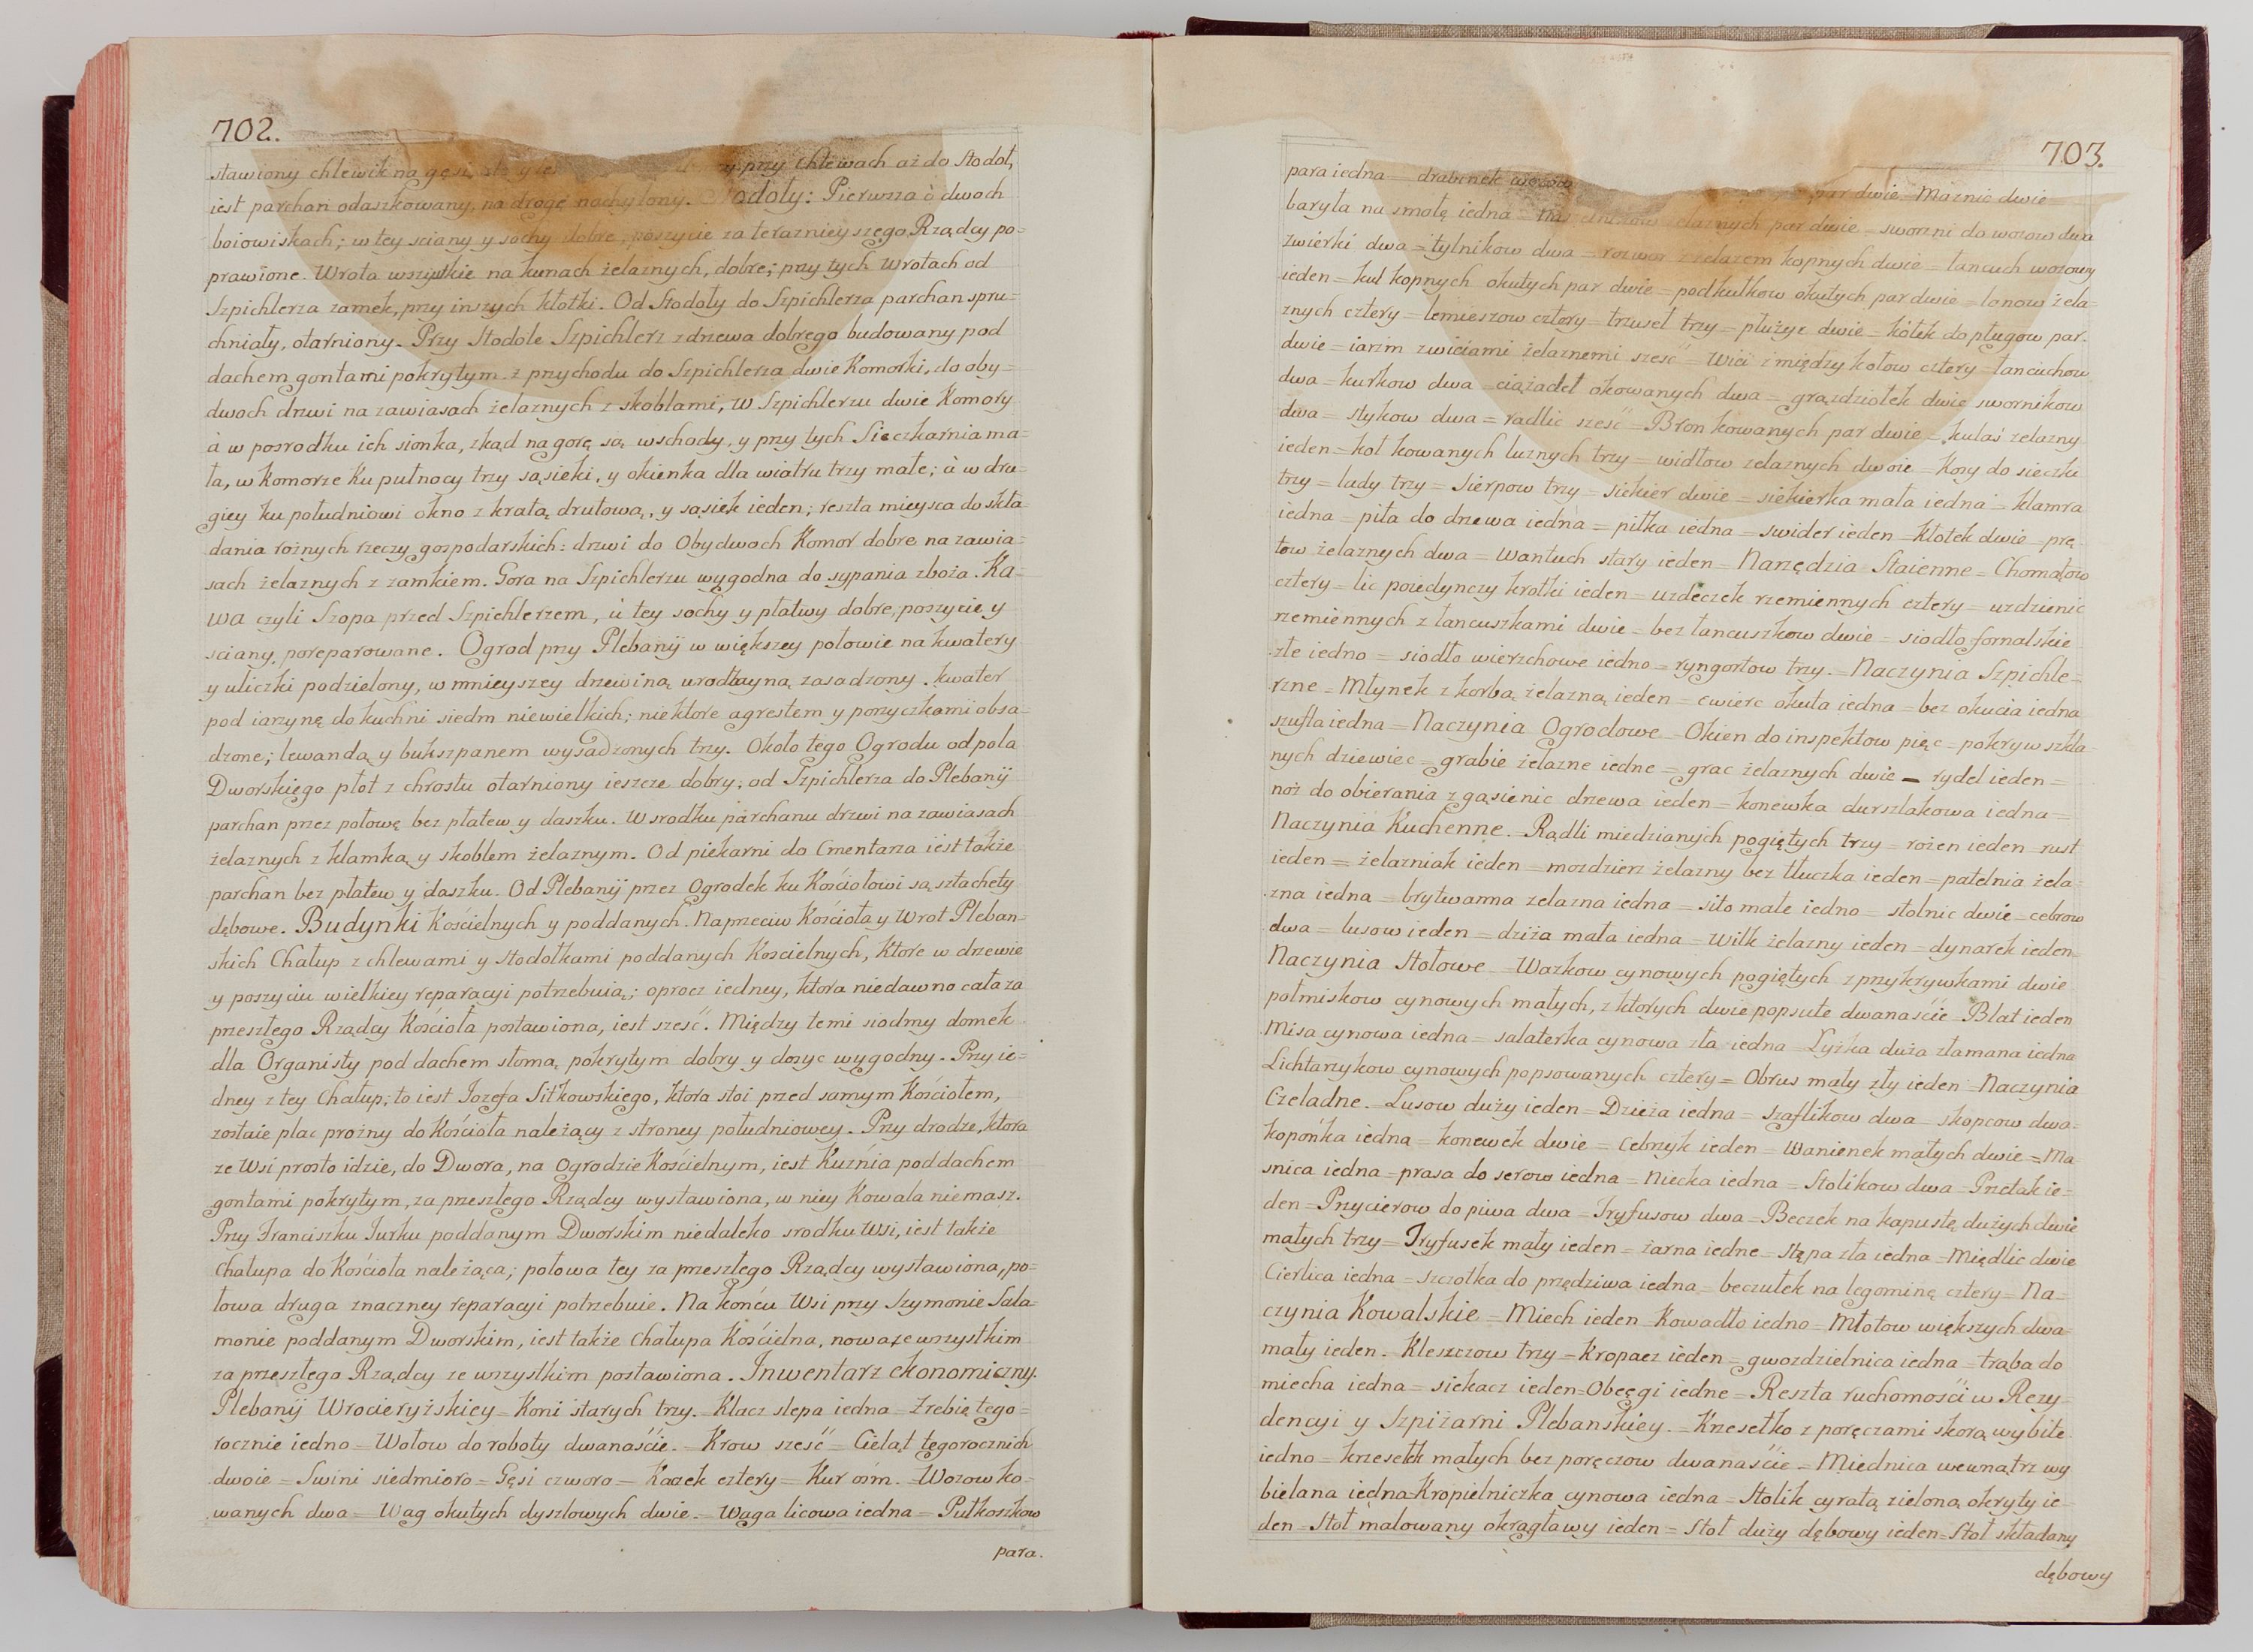 702.
stawiony chlewik na gęsi przy chlewach aż do Stodoł,
iest parchan odaszkowany, na drogę nachylony. Stodoły: Pierwsza ò dwoch
boiowiskach; w tey sciany y sochy dobre, poszycie za teraznieyszego Rządcy po=
prawione. Wrota wszystkie na kunach żelaznych, dobre; przy tych Wrotach od
Szpichlerza zamek, przy inszych kłotki. Od Stodoły do Szpichlerza parchan spru=
chniały, otarniony. Przy Stodole Szpichlerz z drzewa dobrego budowany pod
dachem gontami pokrytym. z przychodu do Szpichlerza dwie Komorki, do oby=
dwoch drzwi na zawiasach żelaznych z skoblami, W Szpichlerzu dwie Komory
à w posrodku ich sionka, zkąd na gorę są wschody, y przy tych Sieczkarnia ma=
ła, w Komorze Ku pułnocy trzy sąsieki, y okienka dla wiatru trzy małe; à w dru=
giey ku południowi okno z kratą drutową, y sąsiek ieden; reszta mieysca do skła=
dania rożnych rzeczy gospodarskich: drzwi do Obydwoch Komor dobre na zawia=
sach żelaznych z zamkiem. Gora na Szpichlerzu wygodna do sypania zboża. Ka=
wa czyli Szopa przed Szpichlerzem, ù tey sochy y płatwy dobre, poszycie y
sciany, poreparowane. Ogrod przy Plebanij w większey połowie na kwatery
y uliczki podzielony, w mnieyszey drzewiną urodzayną zasadzony. kwater
pod iarzynę do kuchni siedm niewielkich; niektore agrestem y porzyczkami obsa=
dzone; lewandą y bukszpanem wysadzonych trzy. Około tego Ogrodu od pola
Dworskiego płot z chrostu otarniony ieszcze dobry; od Szpichlerza do Plebanij
parchan przez połowę bez płatew y daszku. W srodku parchanu drzwi na zawiasach
żelaznych z klamką y skoblem żelaznym. Od piekarni do Cmentarza iest także
parchan bez płatew y daszku. Od Plebanij przez Ogrodek ku Kościołowi są sztachety
dębowe. Budynki Kościelnych y poddanych. Naprzeciw Kościoła y Wrot Pleban=
skich Chałup z chlewami y stodołkami poddanych Koscielnych, Ktore w drzewie
y poszyciu wielkiey reparacyi potrzebuią; oprocz iedney, ktora niedawno cała za
przeszłego Rządcy Kościoła postawiona, iest sześć. Między temi siodmy domek
dla Organisty pod dachem słomą pokrytym dobry y dosyc wygodny. Przy ie=
dney z tey Chałup; to iest Iozefa Sitkowskiego, ktora stoi przed samym Kościołem,
zostaie plac prożny do Kościoła należący z stroney południowey. Przy drodze, ktora
ze Wsi prosto idzie, do Dwora, na Ogrodzie Kościelnym, iest Kuźnia pod dachem
gontami pokrytym, za przeszłego Rządcy wystawiona, w niey Kowala niemasz.
Przy Franciszku Iurku poddanym Dworskim niedaleko srodku Wsi, iest także
Chałupa do Kościoła należąca; połowa tey za przeszłego Rządcy wystawiona, po=
łowa druga znaczney reparacyi potrzebuie. Na końcu Wsi przy Szymonie Sala=
monie poddanym Dworskim, iest także Chałupa Kościelna, nowa ze wszystkim
za przeszłego Rządcy ze wszystkim postawiona. Inwentarz ekonomiczny.
Plebanij Wrocieryżskiey = Koni starych trzy. Klacz slepa iedna = Zrebię tego=
rocznie iedno = Wołow do roboty dwanaście. = Krow sześć = Cieląt tegorocznich
dwoie = Swini siedmioro = Gęsi czworo = Kaczek cztery = Kur ośm. = Wozow ko=
wanych dwa = Wag okutych dyszlowych dwie. = Waga licowa iedna = Pułkoszkow
para.
703.
para iedna = drabinek par dwie = Maznic dwie
baryła na smołę iedna = żelaznych par dwie = sworzni do wozow dwa
zwierki dwa = tylnikow dwa = rozwor z żelazem kopnych dwie = łancuch wozowy
ieden = kuł kopnych okutych par dwie = podkułkow okutych par dwie = lonow żela=
znych cztery = lemieszow cztery = trzuseł trzy = płużyc dwie = kołek do pługow par=
dwie = iarzm z wiciami żelaznemi sześć = Wici z między kołow cztery = łancuchow
dwa = kurkow dwa = ciążadeł okowanych dwa = grązdziołek dwie swornikow
dwa = stykow dwa = radlic sześć = Bron kowanych par dwie = kulaś zelazny
ieden = koł kowanych luznych trzy = widłow zelaznych dwoie = Kosy do sieczki
trzy = lady trzy = Sierpow trzy = siekier dwie = siekierka mała iedna = klamra
iedna = piła do drzewa iedna = piłka iedna = swider ieden = Kłotek dwie = prę=
tow żelaznych dwa = Wantuch stary ieden = Narzędzia Staienne = Chomątow
cztery = lic poiedynczy krotki ieden = uzdeczek rzemiennych cztery = uzdzienic
rzemiennych z łancuszkami dwie = bez łancuszkow dwie = siodło fornalskie
złe iedno = siodło wierzchowe iedno = ryngortow trzy. = Naczynia Szpichle=
rzne = Młynek z korbą żelazną ieden = cwierc okuta iedna = bez okucia iedna
szufla iedna = Naczynia Ogrodowe = Okien do inspektow pięc = pokryw szkla=
nych dziewiec = grabie żelazne iedne = grac żelaznych dwie = rydel ieden =
noż do obierania z gąsienic drzewa ieden = konewka durszlakowa iedna =
Naczynia Kuchenne. = Rądli miedzianych pogiętych trzy = rożen ieden = rust
ieden = żelazniak ieden = mozdzierz żelazny bez tłuczka ieden = patelnia żela=
zna iedna = brytwanna zelazna iedna = sito małe iedno = stolnic dwie = cebrow
dwa = lusow ieden = dziża mała iedna = Wilk żelazny ieden = dynarek ieden=
Naczynia Stołowe = Wazkow cynowych pogiętych z przykrywkami dwie
połmiskow cynowych małych, z ktorych dwie popsute dwanaście = Blat ieden
Misa cynowa iedna = salaterka cynowa zła iedna = Łyżka duża złamana iedna
Lichtarzykow cynowych popsowanych cztery = Obrus mały zły ieden = Naczynia
Czeladne. = Lusow duży ieden = Dzieża iedna = Szaflikow dwa = skopcow dwa=
kopońka iedna = konewek dwie = Cebrzyk ieden = Wanienek małych dwie = Ma=
snica iedna = prasa do serow iedna = Niecka iedna = Stolikow dwa = Przetak ie=
den = Przycierow do piwa dwa = Tryfusow dwa = Beczek na kapustę dużych dwie
małych trzy = Tryfusek mały ieden = żarna iedne = Stępa zła iedna = Międlic dwie
Cierlica iedna = szczotka do przędziwa iedna = beczułek na legominę cztery = Na=
czynia Kowalskie = Miech ieden = Kowadło iedno = Młotow większych dwa=
mały ieden. = Kleszczow trzy = Kropacz ieden = gwozdzielnica iedna = trąba do
miecha iedna = siekacz ieden = Obcęgi iedne = Reszta ruchomości w Rezy=
dencyi y Szpiżarni Plebanskiey. = Krzesełko z poręczami skorą wybite
iedno = krzesełk małych bez poręczow dwanaście = Miednica wewnątrz wy
bielana iedna = Kropielniczka cynowa iedna = Stolik cyratą zieloną okryty ie=
den = Stoł malowany okrągławy ieden = Stoł duży dębowy ieden = Stoł składany
dębowy